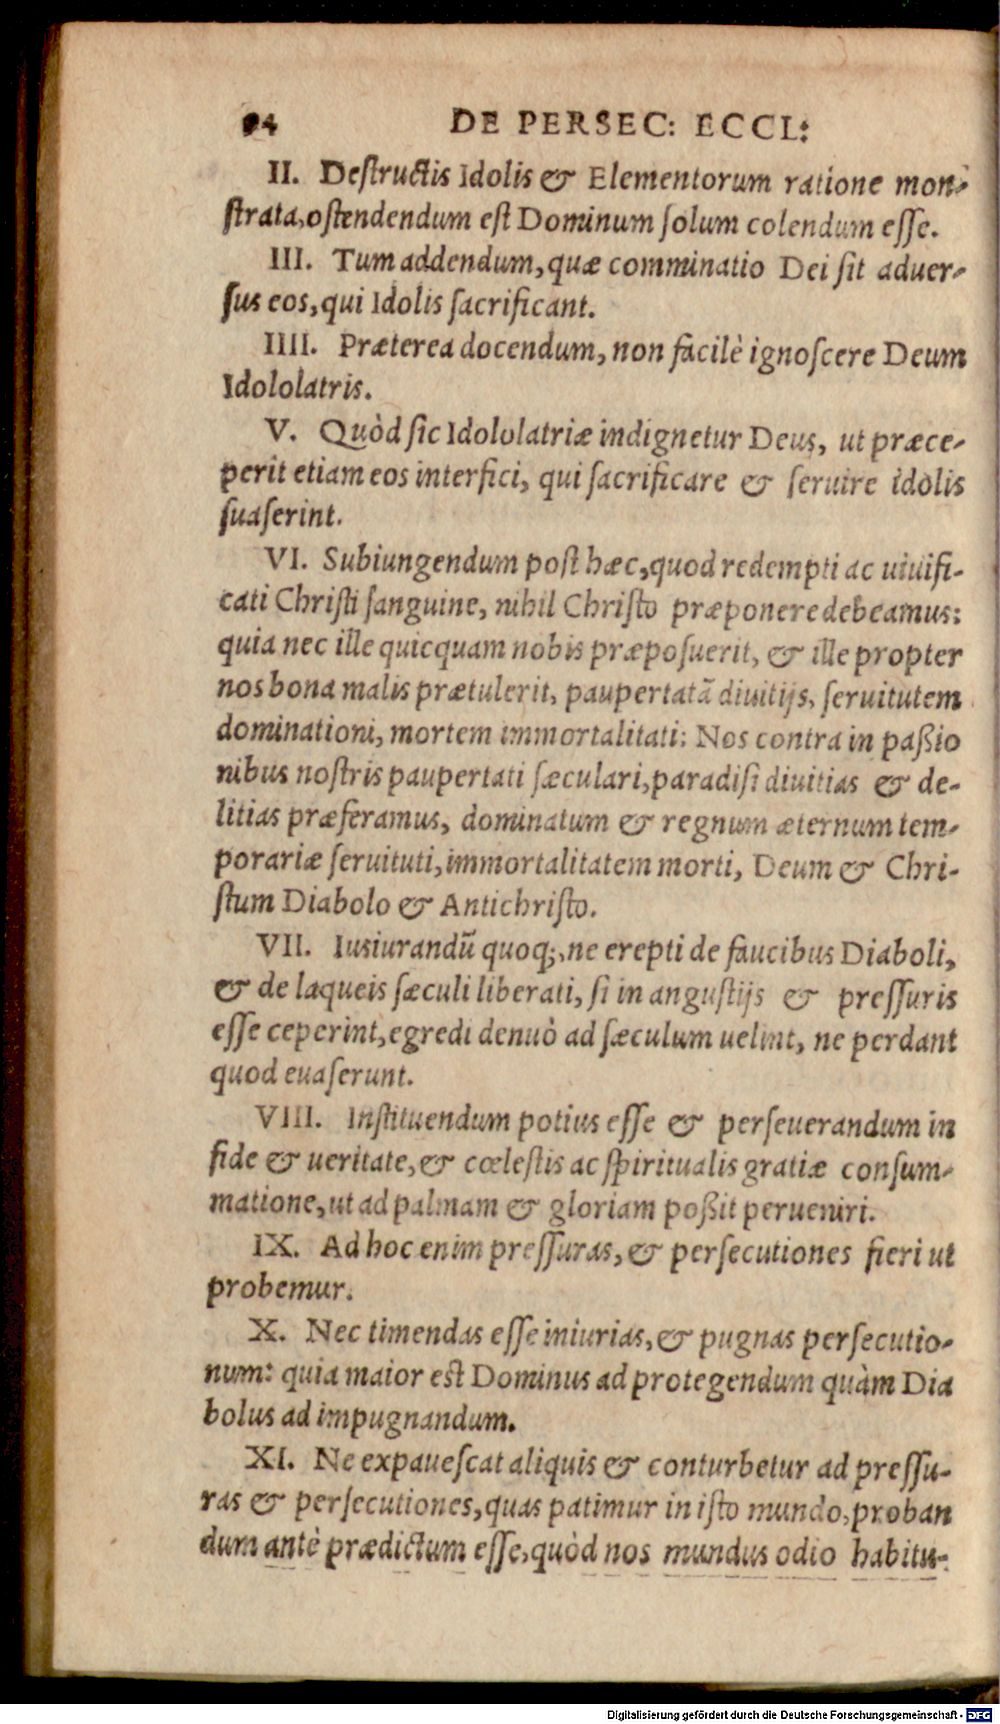 94 DE PERSEC: ECCL:
II. Destructis Idolis & Elementorum ratione mon-
strata, ostendendum est Dominum solum colendum esse.
III. Tum addendum, quæ comminatio Dei sit aduer-
sus eos, qui Idolis sacrificant.
IIII. Præterea docendum, non facilè ignoscere Deum
Idololatris.
V. Quòd sic Idololatriæ indignetur Deus, ut præce-
perit etiam eos interfici, qui sacrificare & seruire idolis
suaserint.
VI. Subiungendum post hæc, quod redempti ac uiuifi-
cati Christi sanguine, nihil Christo præponere debeamus:
quia nec ille quicquam nobis præposuerit, & ille propter
nos bona malis prætulerit, paupertatã diuitijs, seruitutem
dominationi, mortem immortalitati: Nos contra in paßio
nibus nostris paupertati sæculari, paradisi diuitias & de-
litias præferamus, dominatum & regnum æternum tem-
porariæ seruituti, immortalitatem morti, Deum & Chri-
stum Diabolo & Antichristo.
VII. Iusiurandũ quoq;, ne erepti de faucibus Diaboli,
& de laqueis sæculi liberati, si in angustijs & pressuris
esse ceperint, egredi denuò ad sæculum uelint, ne perdant
quod euaserunt.
VIII. Instituendum potius esse & perseuerandum in
fide & ueritate, & cœlestis ac spiritualis gratiæ consum-
matione, ut ad palmam & gloriam poßit perueniri.
IX. Ad hoc enim pressuras, & persecutiones fieri ut
probemur.
X. Nec timendas esse iniurias, & pugnas persecutio-
num: quia maior est Dominus ad protegendum quàm Dia
bolus ad impugnandum.
XI. Ne expauescat aliquis & conturbetur ad pressu-
ras & persecutiones, quas patimur in isto mundo, proban
dum antè prædictum esse, quòd nos mundus odio habitu-
Digitalisierung gefördert durch die Deutsche Forschungsgemeinschaft - DFG